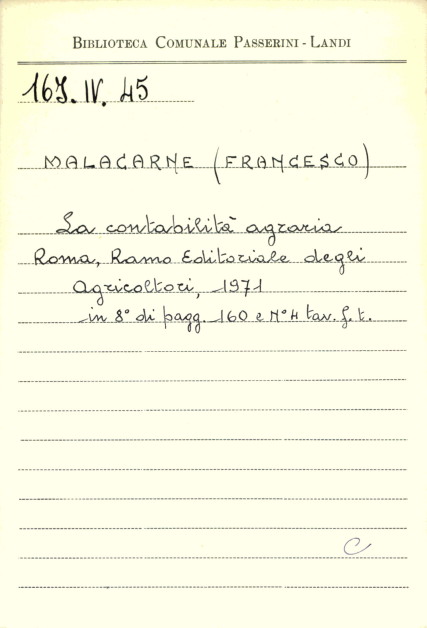 BIBLIOTECA COMUNALE PASSERINI - LANDI
16J. IV. 45
MALACARNE (FRANCESCO)
La contabilità agraria
Roma, Ramo Editoriale degli
Agricoltori, 1971
in 8° di pagg. 160 e N° 4 tav. f. t.
C